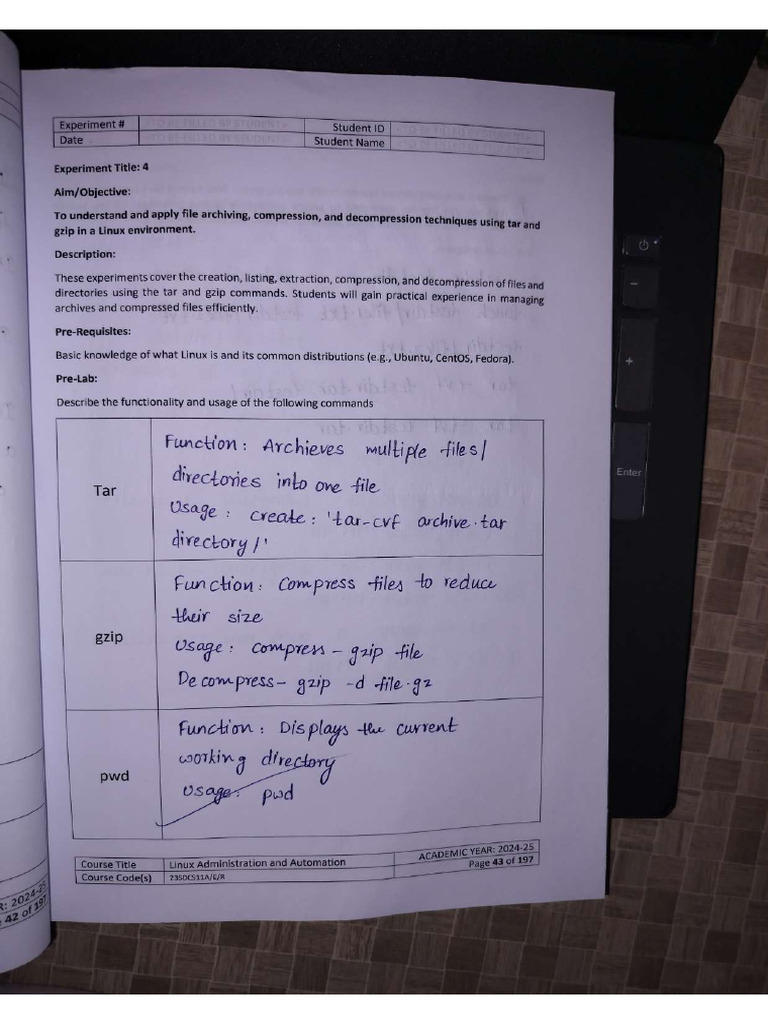 Experiment # Student ID
Date Student Name
Experiment Title: 4
Aim/Objective:
To understand and apply file archiving, compression, and decompression techniques using tar and
gzip in a Linux environment.
Description:
These experiments cover the creation, listing, extraction, compression, and decompression of files and
directories using the tar and gzip commands. Students will gain practical experience in managing
archives and compressed files efficiently.
Pre-Requisites:
Basic knowledge of what Linux is and its common distributions (e.g., Ubuntu, CentOS, Fedora).
Pre-Lab:
Describe the functionality and usage of the following commands
Tar
Function: Archieves multiple files/
directories into one file
Usage: create: 'tar-cvf archive.tar
directory/'
gzip
Function: Compress files to reduce
their size
Usage: compress - gzip file
Decompress- gzip -d file.gz
pwd
Function: Displays the current
working directory
Usage: pwd
Course Title Linux Administration and Automation ACADEMIC YEAR: 2024-25
Course Code(s) 23SDCS11A/E/R Page 43 of 197
R: 2024-25
42 of 197
Enter